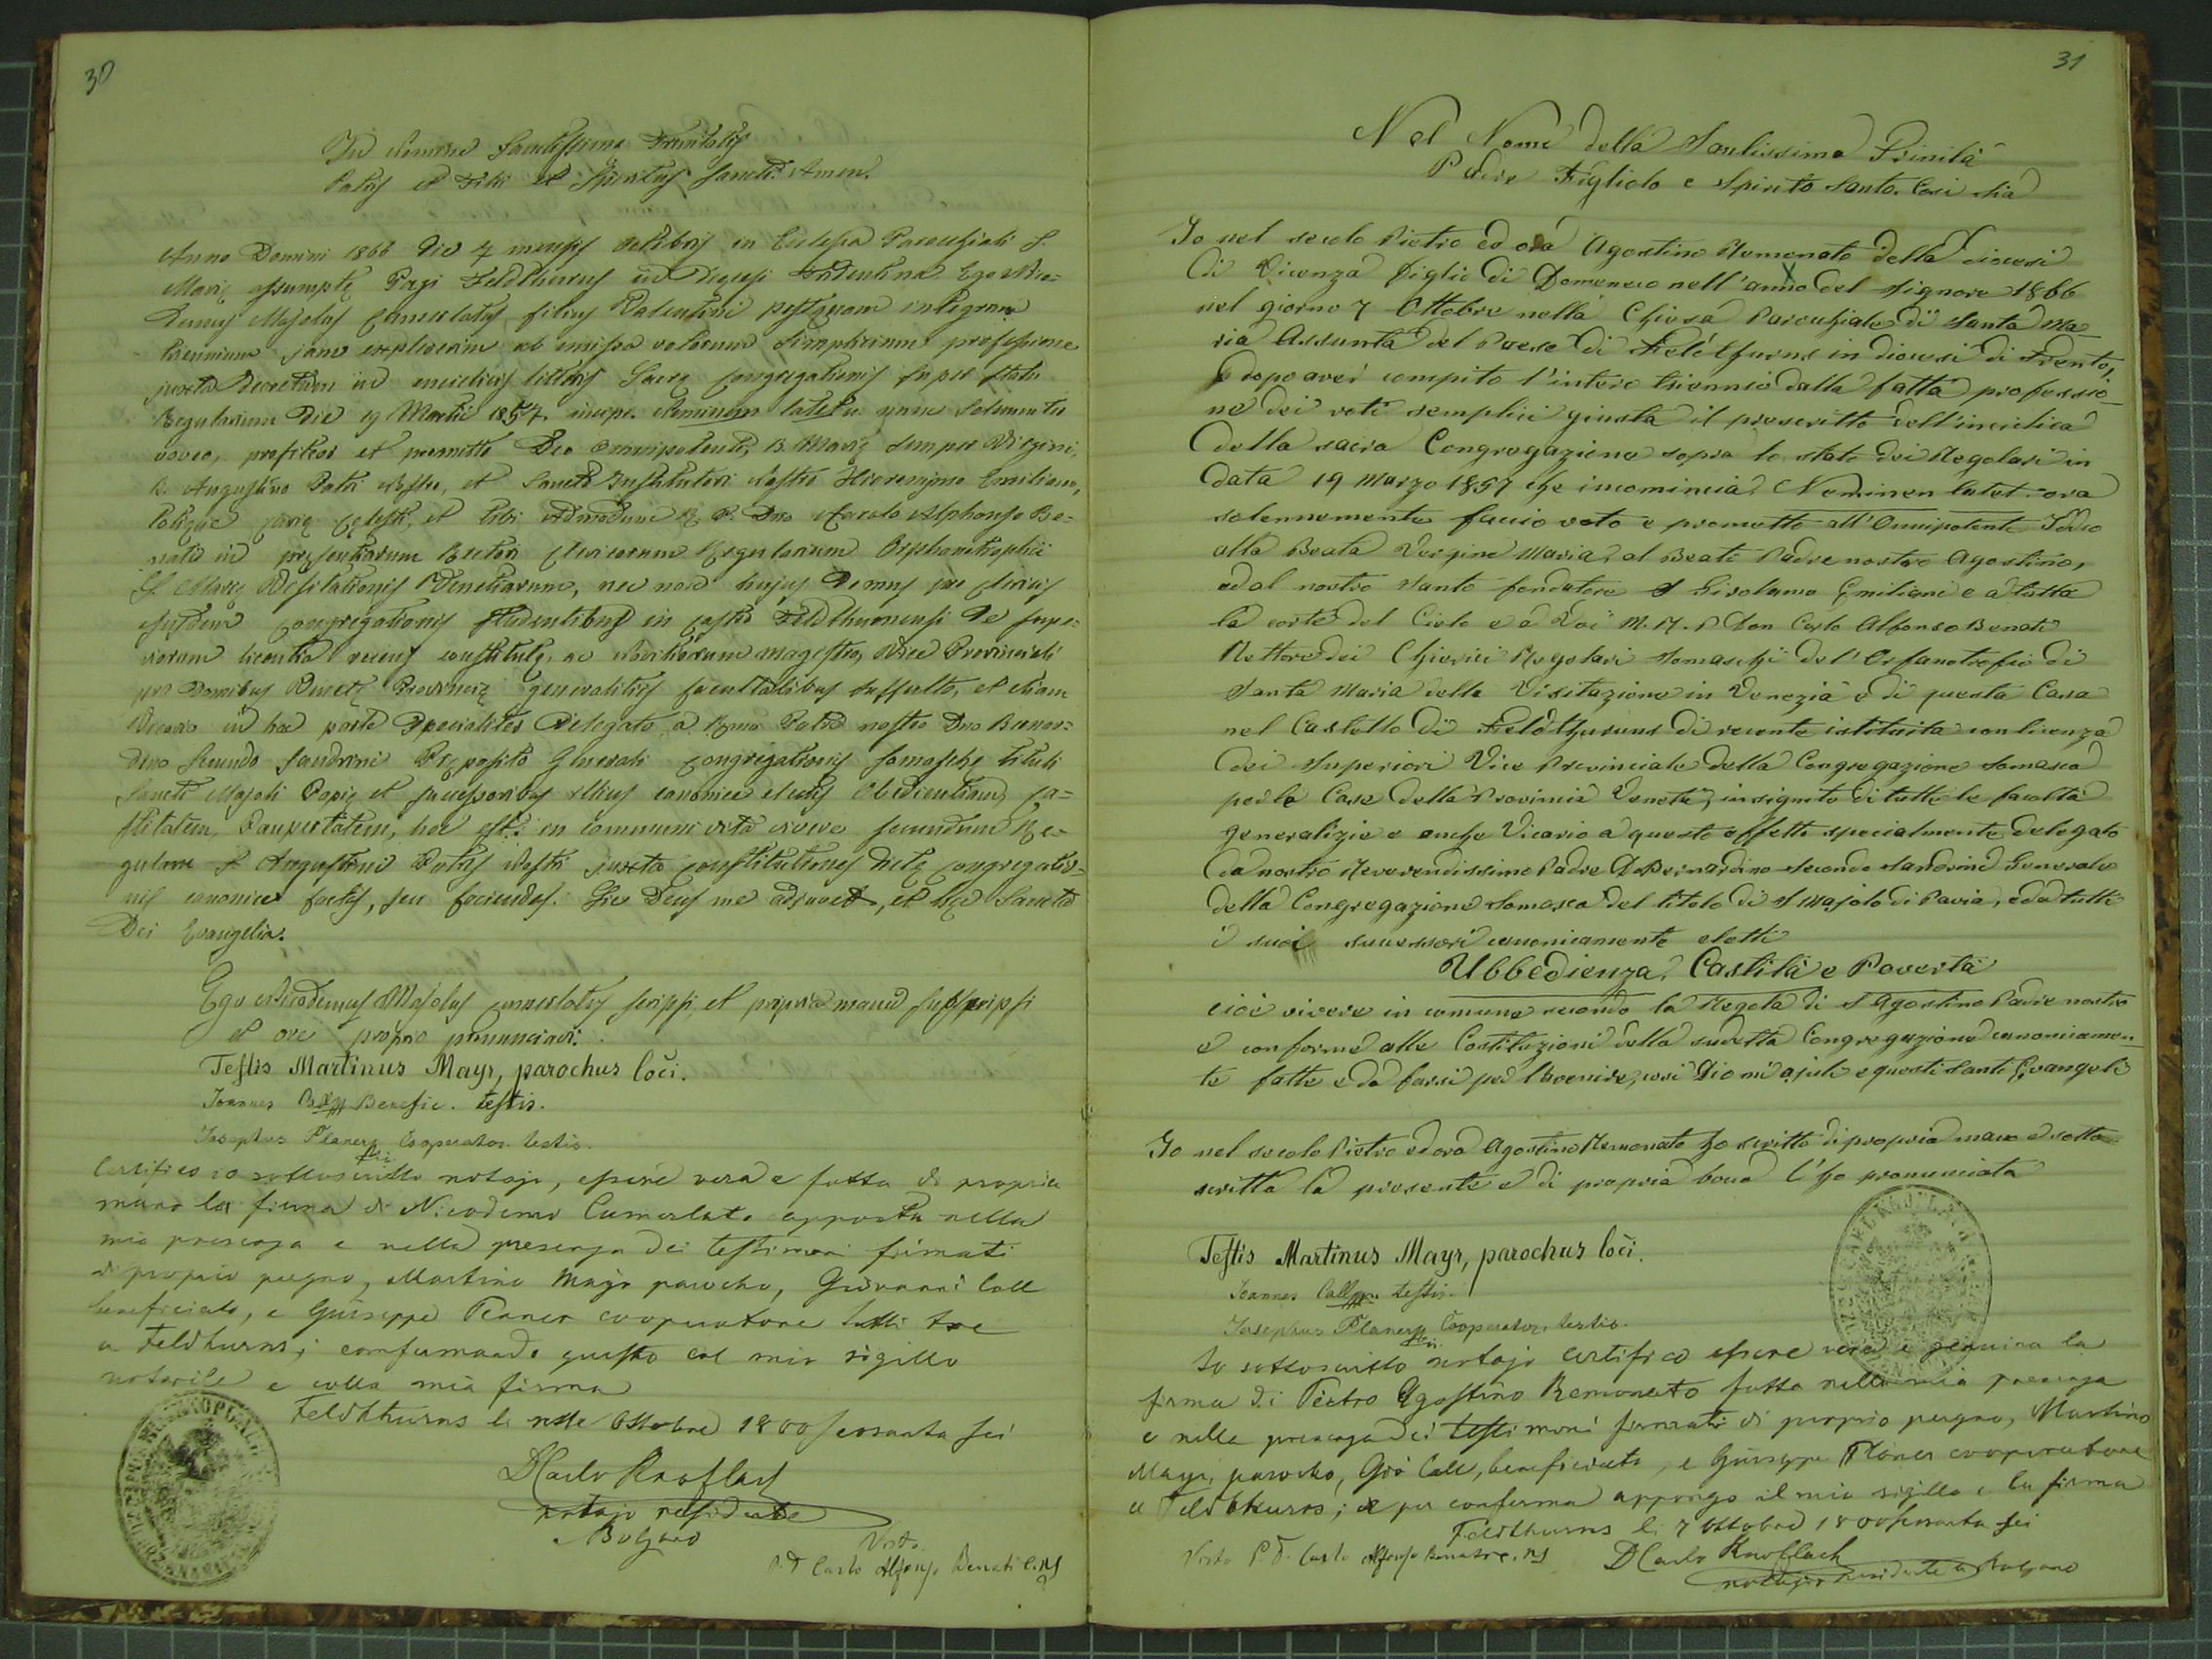 30
In nomine Sanctissimę Trinitatis
Patris et Filii et Spiritus Sancti. Amen.
Anno Domini 1866 Die 7 mensis Octobris in Ecclesia Parochiali S.
Marię assumptę Pagi Feldthurns in Dięcesi Tridentina Ego Nico=
demus Majolus Camerlatus filius Valentini postquam integrum
triennium jam expleverim ab emissa votorum simplicium professione
juxta Decretum in encyclicis litteris Sacrę Congregationis super statu
Regularium Die 19 Martii 1857. incipi. Neminem latet: nunc Solemniter
voveo, profiteor et promitto Deo Omnipotenti, B. Marię semper Virgini,
B. Augustino Patri Nostro, et Sancto Institutori Nostro Hieronijmo Emiliano,
totique curię cęlesti, et tibi Admodum R. P. Dno Carolo Alphonso Be=
nati in presentiarum Rectori Clericorum Regularium Orphanotrophii
S. Marię Visitationis Venetiarum, nec non hujus Domus pro clericis
ejusdem Congregationis studentibus in castro Feldthurnensi de supe=
riorum licentia recens constitutę, ac Novitiorum magistro, Vice Provinciali
pro Domibus Venetę Provincię generalitiis facultatibus suffulto, et etiam
Vicario in hac parte Specialiter Delegato a Rmo Patre nostro Dno Bernar=
dino Secundo Sandrini Pręposito Generali Congregationis Somaschę tituli
Sancti Majoli Papię et successoribus illius canonice electis Obedientiam, Ca=
stitatem, Paupertatem, hoc est: in communi vita vivere secundum Re=
gulam S. Augustini Patris Nostri juxta constitutiones dictę Congregatio=
nis canonice factas, seu faciendas. Sic Deus me adjuvet, et hęc Sancta
Dei Evangelia.
Ego Nicodemus Majolus Camerlatus scripsi, et propria manu subscripsi
et ore proprio pronunciavi.
Testis Martinus Mayr, parochus loci.
Joannes Benefic. testis.
Josephus Planer Cooperator testis.
Certifico io sottoscritto notajo, essere vera e fatta di propria
mano la firma di Nicodemo Camerlato apposta nella
mia presenza e nella presenza dei testimoni firmati
di proprio pugno, Martino Mayr parocho, Giovanni Coll
beneficiato, e Giuseppe Planer cooperatore tutti tre
a Feldthurns; confermando questo col mio sigillo
notarile e colla mia firma
Feldthurns li sette Ottobre 1800 sessanta sei
D Carlo Knoflach
notajo residente
Bolzano
Visto
P. D. Carlo Alfonso Benati C.R.S
31
Nel Nome della Santissima Trinità
Padre Figliolo e Spirito Santo. Così sia
Io nel secolo Pietro ed ora Agostino Remonato della diocesi
di Vicenza figlio di Domenico nell'anno del Signore 1866
nel giorno 7 Ottobre nella Chiesa Parochiale di Santa Ma
ria Assunta del Paese di Feldthurns in diocesi di Trento,
e dopo aver compito l'intero triennio dalla fatta professio_
ne dei voti semplici giusta il prescritto dell'inciclica
della sacra Congregazione sopra lo stato dei Regolari in
data 19 Marzo 1857 che incomincia: Neminem latet: ora
solennemente faccio voto e prometto all'Omnipotente Iddio
alla Beata Vergine Maria, al Beato Padre nostro Agostino,
ed al nostro Santo fondatore S Girolamo Emiliani e a tutta
la corte del Cielo e a Voi M. R. P Don Carlo Alfonso Benati
Rettore dei Chierici Regolari Somaschi del'Orfanotrofio di
Santa Maria della Visitazione in Venezia e di questa Casa
nel Castello di Feldthurns di recente istituita con licenza
dei Superiori Vice Provinciale della Congregazione Somasca
per le Case della Provincia Veneta, insignito di tutte le facoltà
generalizie e anche Vicario a questo effetto specialmente delegato
da nostro Reverendissimo Padre D. Bernardino Secondo Sandrini Generale
della Congregazione Somasca del titolo di S Majolo di Pavia, ed a tutti
i suoi successori canonicamente eletti
Ubbedienza, Castità e Povertà
cioè vivere in comune secondo la Regola di S Agostino Padre nostro
e conforme alle Costituzioni della sudetta Congregazione canonicamen_
te fatte e da farsi per l'avenire, così Dio mi ajuti e questi Santi Evangeli
Io nel secolo Pietro ed ora Agostino Remonato ho scritto di propria mano e sotto=
scritta la presente e di propria bocca l'ho pronunciata
Testis Martinus Mayr, parochus loci.
Joannes Coll testis.
Josephus Planer Cooperator, testis.
Io sottoscritto notajo certifico essere vera e genuina la
firma di Pietro Agostino Remonato fatta nella mia presenza
e nella presenza dei testimoni firmati di proprio pugno, Martino
Mayr, parocho, Gio Coll, beneficiato, e Giuseppe Planer cooperatore
a Feldthurns; e per conferma appongo il mio sigillo e la firma
Feldthurns li 7 Ottobre 1800 sessanta sei
Visto P. D. Carlo Alfonso Benati C. R. S
D Carlo Knoflach
notajo residente a Bolzano